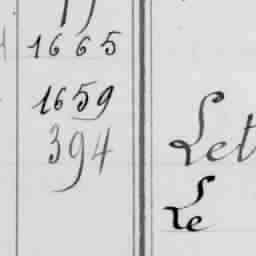 1665
1659
394
Let
Le